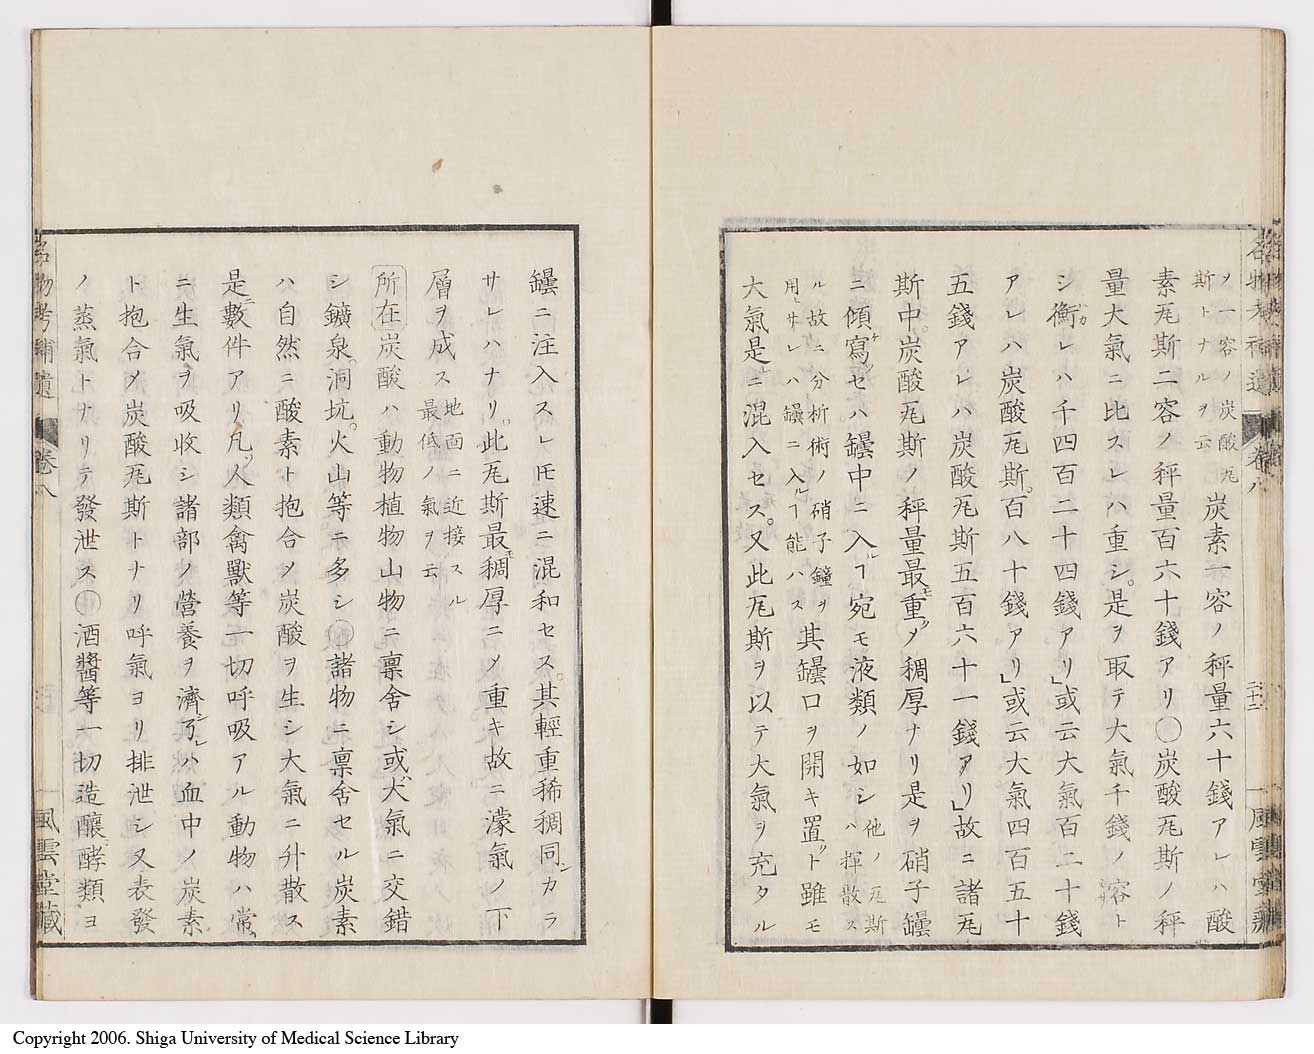 ノ一容ノ炭酸瓦
斯トナルヲ云
炭素一容ノ秤量六十錢アレハ酸
素瓦斯二容ノ秤量百六十錢アリ〇炭酸瓦斯ノ秤
量大氣ニ比スレハ重シ。是ヲ取テ大氣千錢ノ容ト
シ衡レハ千四百二十四錢アリ」或云大氣百二十錢
アレハ炭酸瓦斯。百八十錢アリ」或云大氣四百五十
五錢アレハ炭酸瓦斯五百六十一錢アリ」故ニ諸瓦
斯中。炭酸瓦斯ノ秤量最重〆稠厚ナリ是ヲ硝子罎
ニ傾寫セハ罎中ニ入ルヿ宛モ液類ノ如シ
他ノ瓦斯
ハ揮散ス
ル故ニ分析術ノ硝子鐘ヲ
用ヒサレハ罎ニ入ルヿ能ハス
其罎口ヲ開キ置クト雖モ
大氣是レニ混入セス。又此瓦斯ヲ以テ大氣ヲ充タル
罎ニ注入スレ𪜈速ニ混和セス。其輕重稀稠同シカラ
サレハナリ。此瓦斯最モ稠厚ニ〆重キ故ニ濛氣ノ下
層ヲ成ス
地面ニ近接スル
最低ノ氣ヲ云
所在炭酸ハ動物植物山物ニ稟舍シ或ハ大氣ニ交錯
シ鑛泉。洞坑。火山等ニ多シ諸物ニ稟舍セル炭素
ハ自然ニ酸素ト抱合〆炭酸ヲ生シ大氣ニ升散ス
是ニ數件アリ凡ソ人類禽獸等一切呼吸アル動物ハ常
ニ生氣ヲ吸收シ諸部ノ營養ヲ濟シ乃レハ血中ノ炭素
ト抱合〆炭酸瓦斯トナリ呼氣ヨリ排泄シ又表發
ノ蒸氣トナリテ發泄ス酒醬等一切造釀酵類ヨ
名物考補遺
卷八
風雲堂藏